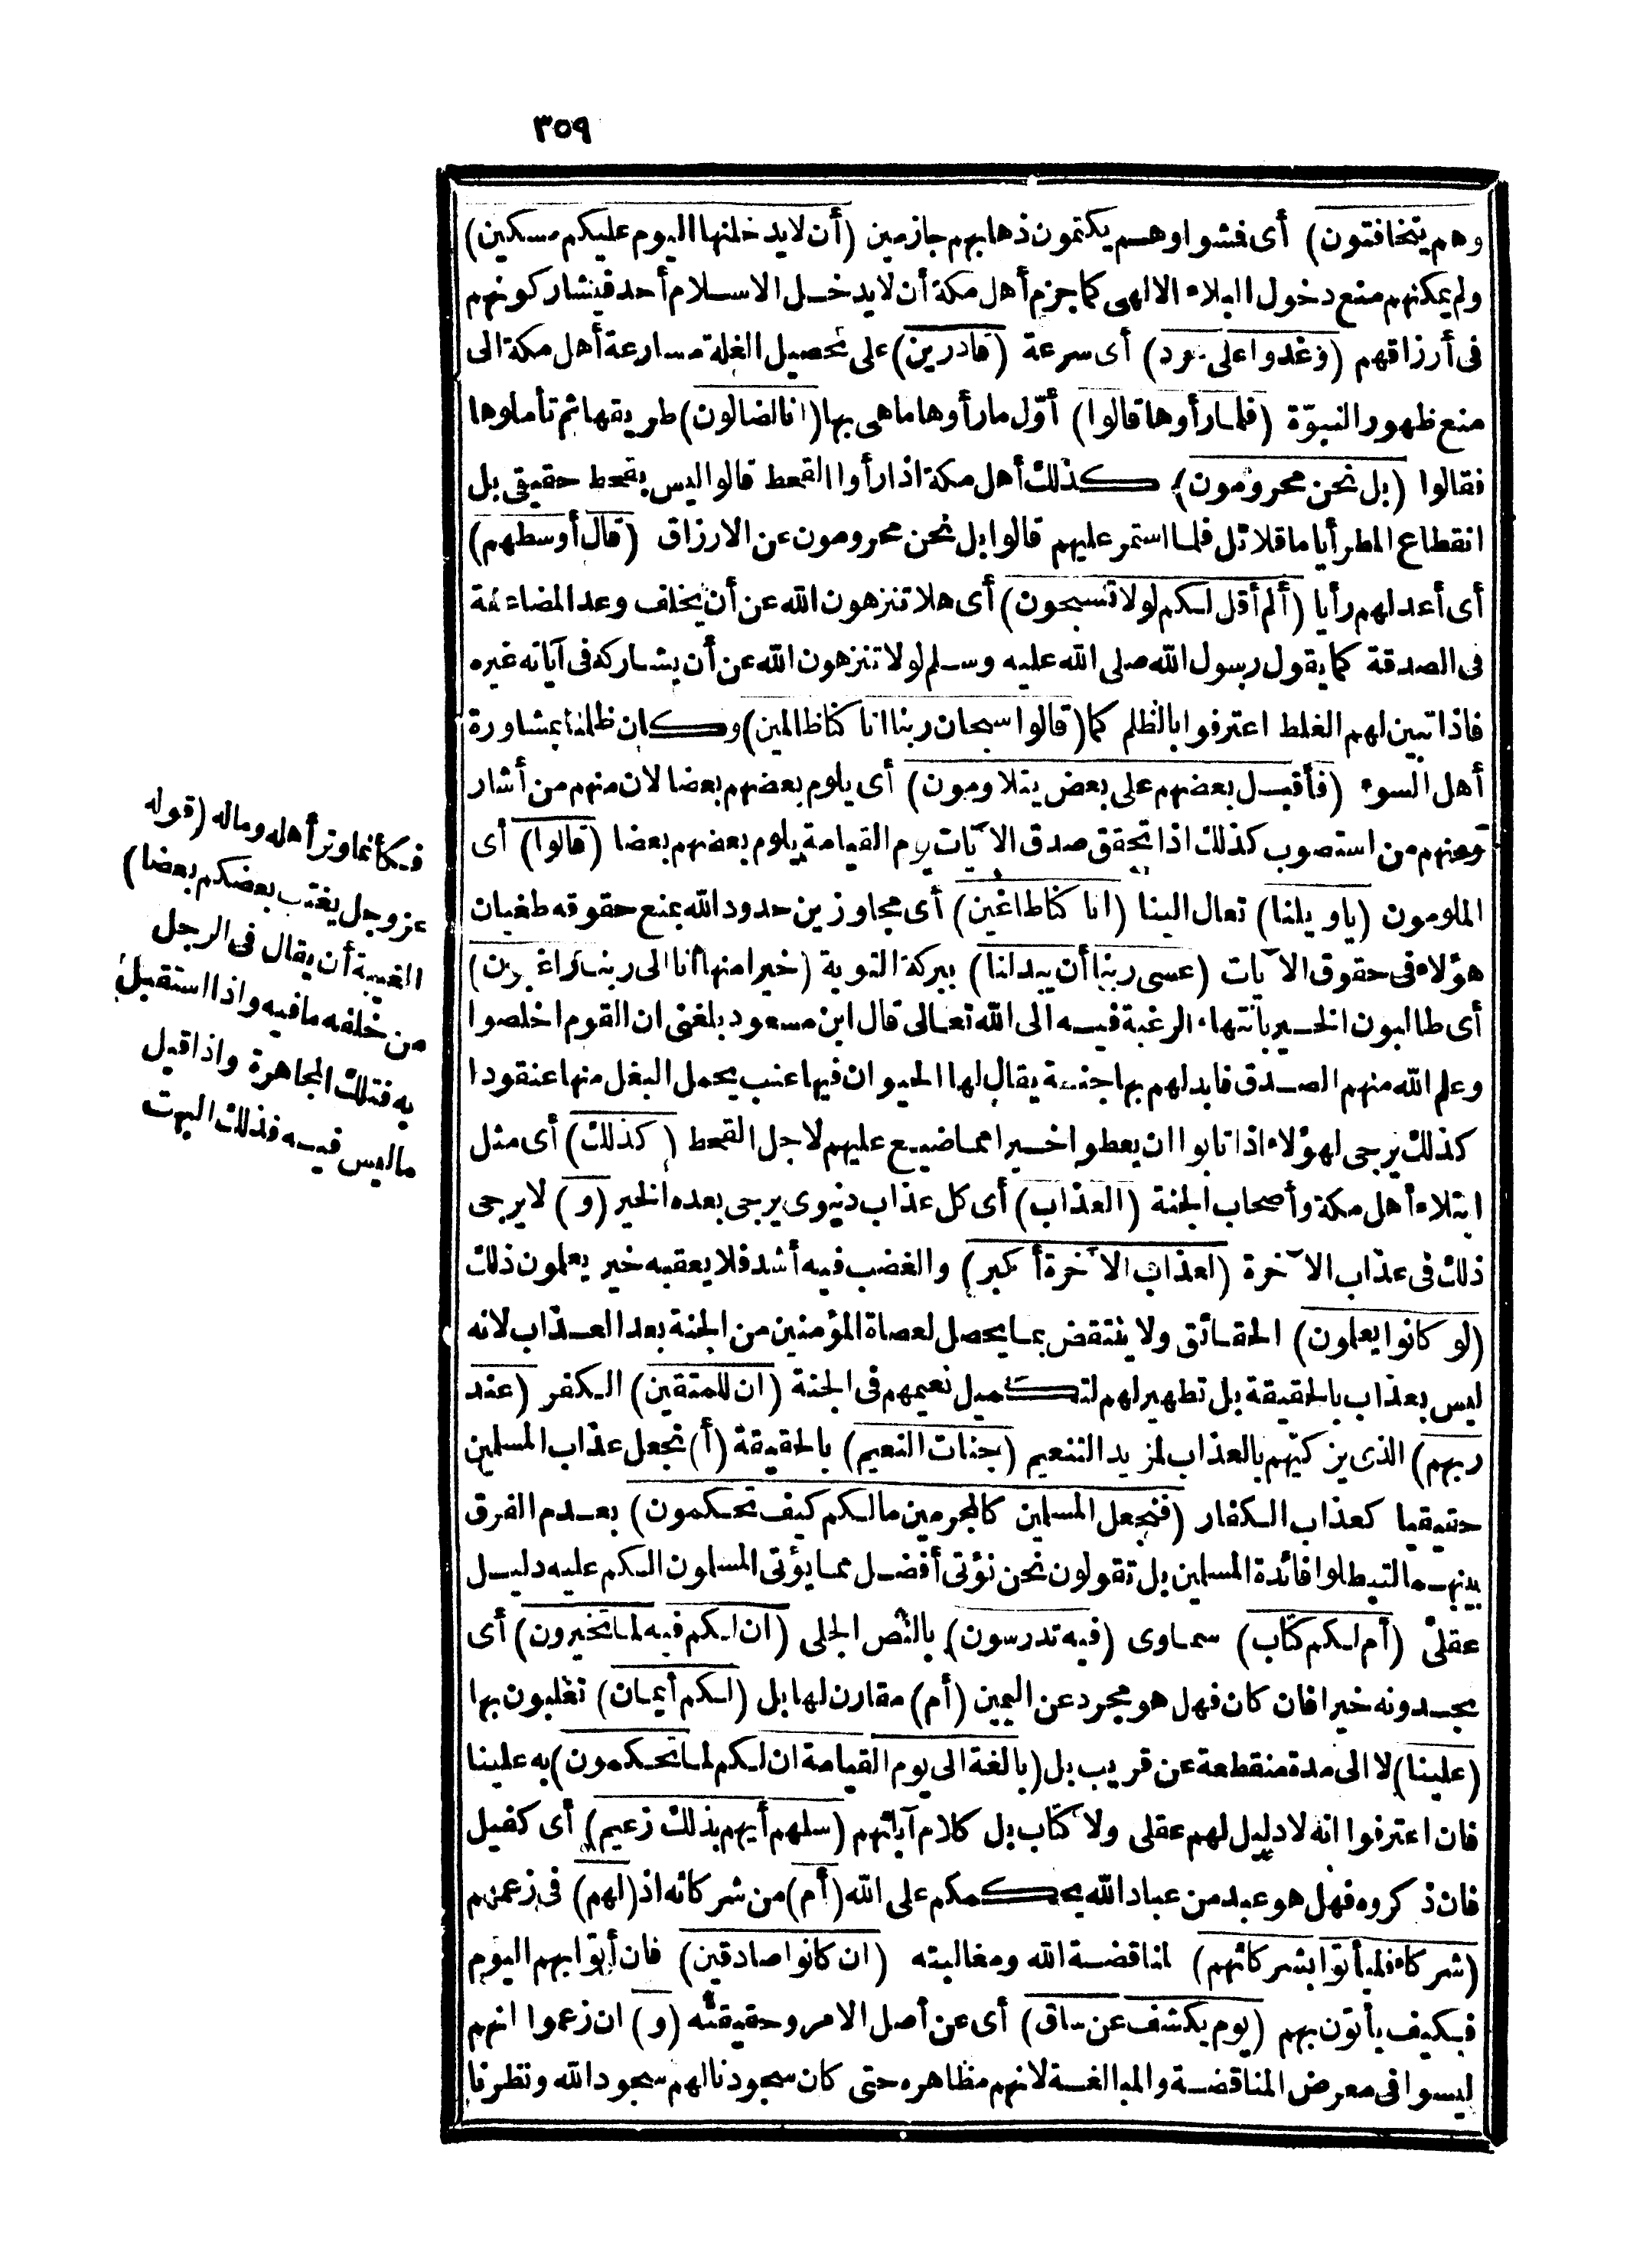 ٣٥٩
وهم يتخافتون) أى فشوا وهم يكتمون ذهابهم جازمين (أن لا يدخلنها اليوم عليكم مسكين)
ولم يمكنهم منع دخول البلاء الالهى كما جزم أهل مكة أن لا يدخل الاسلام أحد فيشاركونهم
فى أرزاقهم (وغدوا على حرد) أى سرعة (قادرين) على تحصيل الغلة مسارعة أهل مكة الى
منع ظهور النبوّة (فلما رأوها قالوا) أوّل ما رأوها ما هى بها (انا لضالون) طريقها ثم تأملوها
فقالوا (بل نحن محرومون) كذلك أهل مكة اذا رأوا القحط قالوا ليس بقحط حقيقى بل
انقطاع المطر أياما قلائل فلما استمر عليهم قالوا بل نحن محرومون عن الارزاق (قال أوسطهم)
أى أعدلهم رأيا (ألم أقل لكم لولا تسبحون) أى هلا تنزهون الله عن أن يخلف وعد المضاعفة
فى الصدقة كما يقول رسول الله صلى الله عليه وسلم لولا تنزهون الله عن أن يشاركه فى آياته غيره
فاذا تبين لهم الغلط اعترفوا بالظلم كما (قالوا سبحان ربنا انا كنا ظالمين) وكان ظلمنا بمشاورة
أهل السوء (فأقبل بعضهم على بعض يتلاومون) أى يلوم بعضهم بعضا لان منهم من أشار
ومنهم من استصوب كذلك اذا تحقق صدق الآيات يوم القيامة يلوم بعضهم بعضا (قالوا) أى
الملومون (يا ويلنا) تعال الينا (انا كنا طاغين) أى مجاوزين حدود الله بمنع حقوقه طغيان
هؤلاء فى حقوق الآيات (عسى ربنا أن يبدلنا) ببركة التوبة (خيرا منها انا الى ربنا راغبون)
أى طالبون الخير بانتهاء الرغبة فيه الى الله تعالى قال ابن مسعود بلغنى ان القوم اخلصوا
وعلم الله منهم الصدق فابدلهم بها جنة يقال لها الحيوان فيها عنب يحمل البغل منها عنقودا
كذلك يرجى لهؤلاء اذا تابوا ان يعطوا خيرا مما ضيع عليهم لاجل القحط (كذلك) أى مثل
ابتلاء أهل مكة وأصحاب الجنة (العذاب) أى كل عذاب دنيوى يرجى بعده الخير (و) لا يرجى
ذلك فى عذاب الآخرة (لعذاب الآخرة أكبر) والغضب فيه أشد فلا يعقبه خير يعلمون ذلك
(لو كانوا يعلمون) الحقائق ولا ينتقض بما يحصل لعصاة المؤمنين من الجنة بعد العذاب لانه
ليس بعذاب بالحقيقة بل تطهير لهم لتكميل نعيمهم فى الجنة (ان للمتقين) الكفر (عند
ربهم) الذى يزكيهم بالعذاب لمزيد التنعيم (جنات النعيم) بالحقيقة (أ) نجعل عذاب المسلمين
حقيقيا كعذاب الكفار (فنجعل المسلمين كالمجرمين ما لكم كيف تحكمون) بعدم الفرق
بينهما لتبطلوا فائدة المسلمين بل تقولون نحن نؤتى أفضل مما يؤتى المسلمون الكم عليه دليل
عقلىّ (أم لكم كتاب) سماوى (فيه تدرسون) بالنص الجلى (ان لكم فيه لما تخيرون) أى
تجدونه خيرا فان كان فهل هو مجرد عن اليمين (أم) مقارن لها بل (لكم أيمان) تغلبون بها
(علينا) لا الى مدة منقطعة عن قريب بل (بالغة الى يوم القيامة ان لكم لما تحكمون) به علينا
فان اعترفوا انه لا دليل لهم عقلى ولا كتاب بل كلام آبائهم (سلهم أيهم بذلك زعيم) أى كفيل
فان ذكروه فهل هو عبد من عباد الله يحكمكم على الله (أم) من شركائه اذ (لهم) فى زعمهم
(شركاء فليأتوا بشركائهم) لمناقضة الله ومغالبته (ان كانوا صادقين) فان أتوا بهم اليوم
فكيف يأتون بهم (يوم يكشف عن ساق) أى عن أصل الامر وحقيقته (و) ان زعموا انهم
ليسوا فى معرض المناقضة والمبالغة لانهم مظاهره حتى كان سجودنا لهم سجود الله ونظرنا
فكأنما وتر أهله وماله (قوله
عز وجل يغتب بعضكم بعضا)
الغيبة أن يقال فى الرجل
من خلفه ما فيه واذا استقبل
به فتلك المجاهرة واذا قيل
ما ليس فيه فذلك البهت